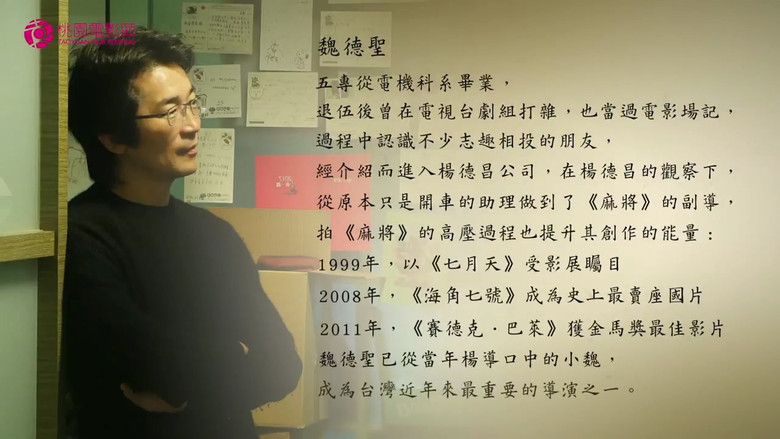 桃園電影節
魏德聖
五專從電機科系畢業，
退伍後曾在電視台劇組打雜，也當過電影場記，
過程中認識不少志趣相投的朋友，
經介紹而進入楊德昌公司，在楊德昌的觀察下，
從原本只是開車的助理做到了《麻將》的副導，
拍《麻將》的高壓過程也提升其創作的能量：
1999年，以《七月天》受影展矚目
2008年，《海角七號》成為史上最賣座國片
2011年，《賽德克‧巴萊》獲金馬獎最佳影片
魏德聖已從當年楊導口中的小魏，
成為台灣近年來最重要的導演之一。